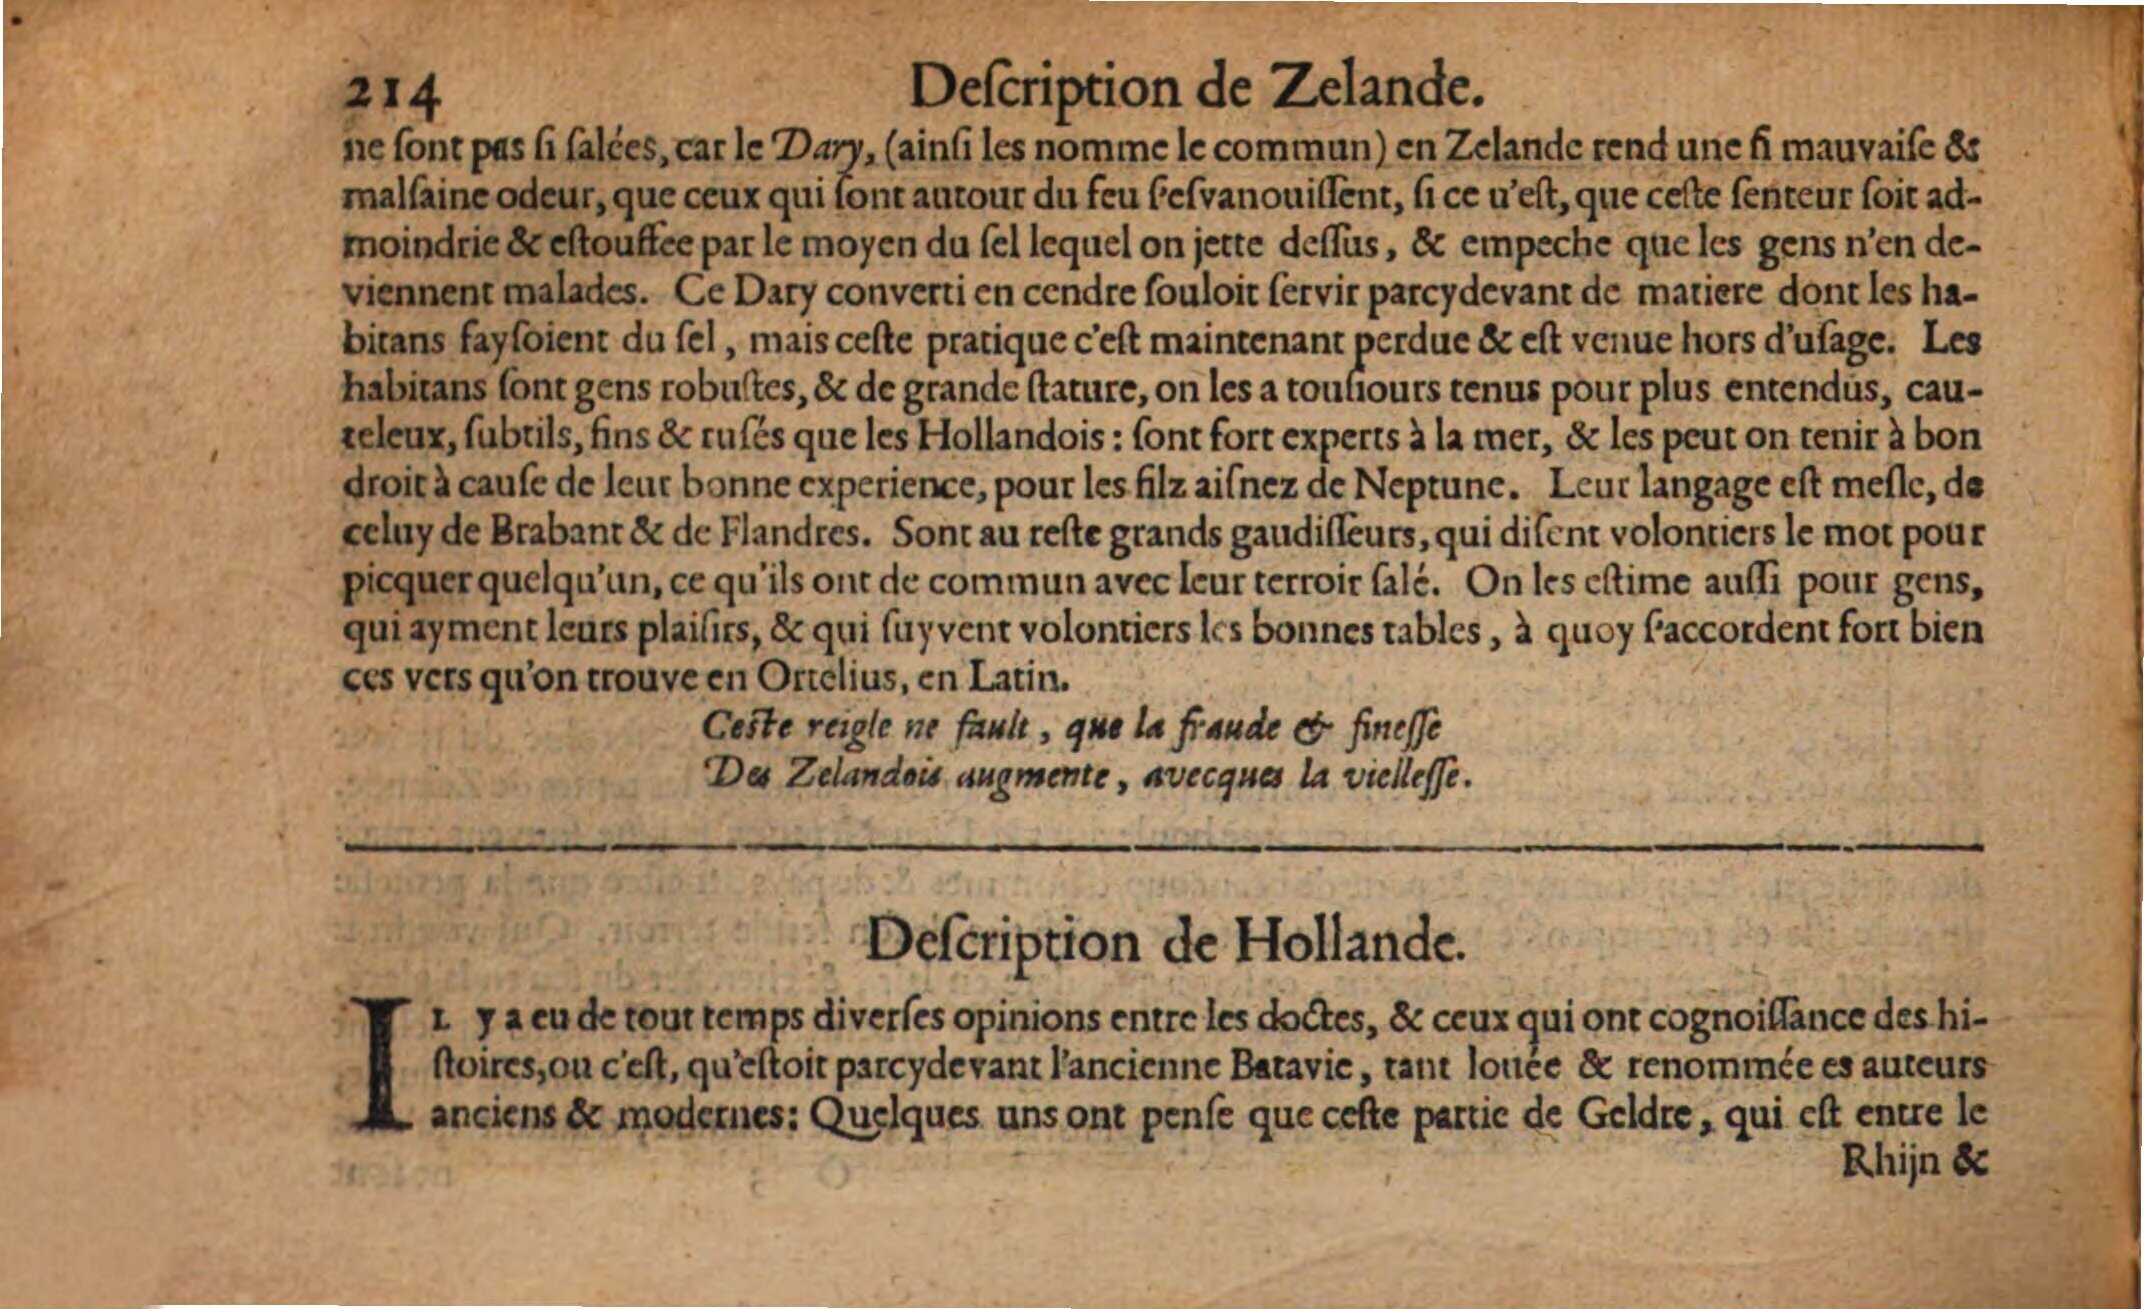 214 Deſcription de Zelande.
ne ſont pas ſi ſalées, car le Dary, (ainſi les nomme le commun) en Zelande rend une ſi mauvaiſe &
malſaine odeur, que ceux qui ſont autour du feu ſ'eſvanouiſſent, ſi ce u'eſt, que ceſte ſenteur ſoit ad-
moindrie & eſtouffee par le moyen du ſel lequel on jette deſſus, & empeche que les gens n'en de-
viennent malades. Ce Dary converti en cendre ſouloit ſervir parcydevant de matiere dont les ha-
bitans fayſoient du ſel, mais ceſte pratique c'eſt maintenant perdue & eſt venue hors d'uſage. Les
habitans ſont gens robuſtes, & de grande ſtature, on les a touſiours tenus pour plus entendus, cau-
teleux, ſubtils, fins & ruſés que les Hollandois : ſont fort experts à la mer, & les peut on tenir à bon
droit à cauſe de leur bonne experience, pour les filz aiſnez de Neptune. Leur langage eſt meſle, de
celuy de Brabant & de Flandres. Sont au reſte grands gaudiſſeurs, qui diſent volontiers le mot pour
picquer quelqu'un, ce qu'ils ont de commun avec leur terroir ſalé. On les eſtime auſſi pour gens,
qui ayment leurs plaiſirs, & qui ſuyvent volontiers les bonnes tables, à quoy ſ'accordent fort bien
ces vers qu'on trouve en Ortelius, en Latin.
Ceſte reigle ne fault, que la fraude & fineſſe
Des Zelandois augmente, avecques la vielleſſe.
Deſcription de Hollande.
IL y a eu de tout temps diverſes opinions entre les doctes, & ceux qui ont cognoiſſance des hi-
ſtoires, ou c'eſt, qu'eſtoit parcydevant l'ancienne Batavie, tant louée & renommée es auteurs
anciens & modernes: Quelques uns ont penſe que ceſte partie de Geldre, qui eſt entre le
Rhijn &